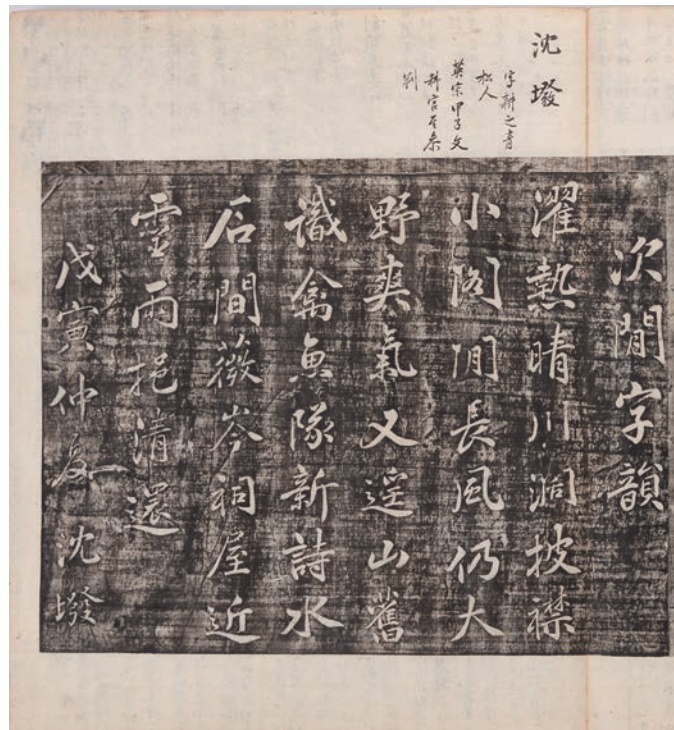 沈墢
字耕之青
松人
英宗甲子文
科官至參
判
次閒字韻
濯熱晴川洞披襟
小閣閒長風仍大
野爽氣又遥山舊
識禽魚隊新詩水
石間薇岑祠屋近
靈雨挹清還
戊寅仲夏沈墢